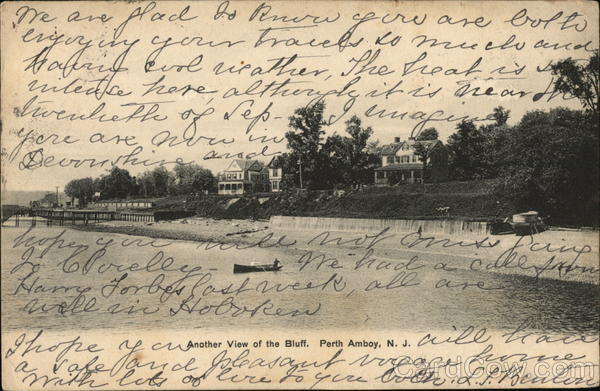 We are glad to know you are both
enjoying your travels so much and
having cool weather, The heat is
intense here, although it is near the
twentieth of Sep- I imagine
you are now in
Devonshire and
hope you will not miss
Corelly - We had a call from
Harry Forbes last week, all are
well in Hoboken
Another View of the Bluff. Perth Amboy, N. J.
I hope you will have
a safe and pleasant voyage home
With lots of love to you both,
CardCow.com